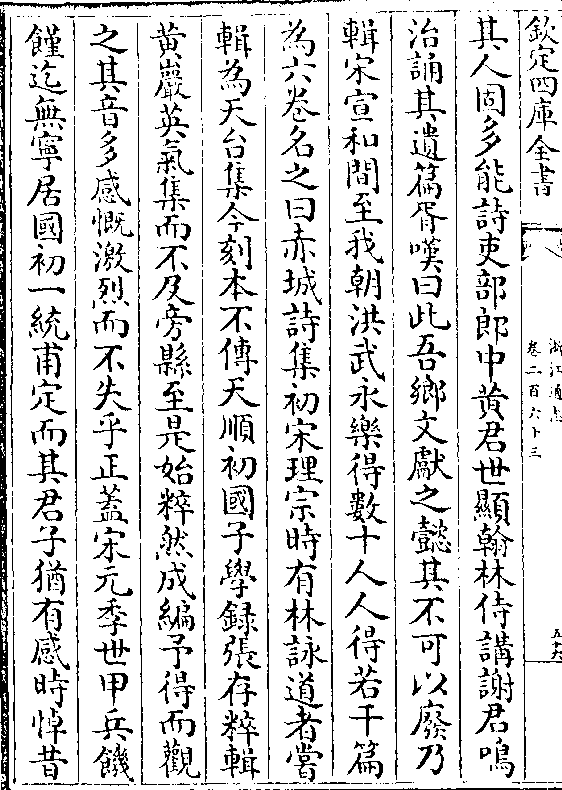 欽定四庫全書
浙江通志
卷二百六十三
其人固多能詩吏部郎中黄君世顯翰林侍講謝君鳴
治誦其遺篇胥嘆曰此吾鄉文獻之懿其不可以廢乃
輯宋宣和間至我朝洪武永樂得數十人人得若干篇
為六卷名之曰赤城詩集初宋理宗時有林詠道者嘗
輯為天台集今刻本不傳天順初國子學録張存粹輯
黄巖英氣集而不及旁縣至是始粹然成編予得而觀
之其音多感慨激烈而不失乎正蓋宋元季世甲兵饑
饉迄無寧居國初一統甫定而其君子猶有感時悼昔